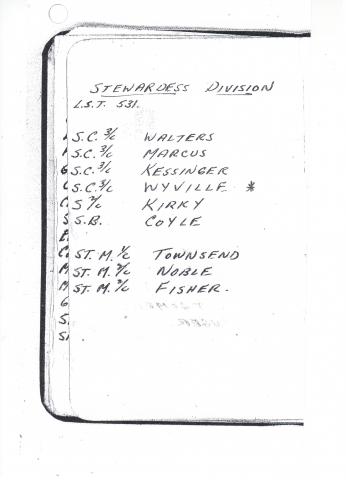 STEWARDESS DIVISION
L.S.T. 531.
S.C. 3/c WALTERS
S.C. 3/c MARCUS
S.C. 3/c KESSINGER
S.C. 3/c WYVILLE *
S 2/c KIRKY
S.B. COYLE
ST. M. 1/c TOWNSEND
ST. M. 2/c NOBLE
ST. M. 2/c FISHER.